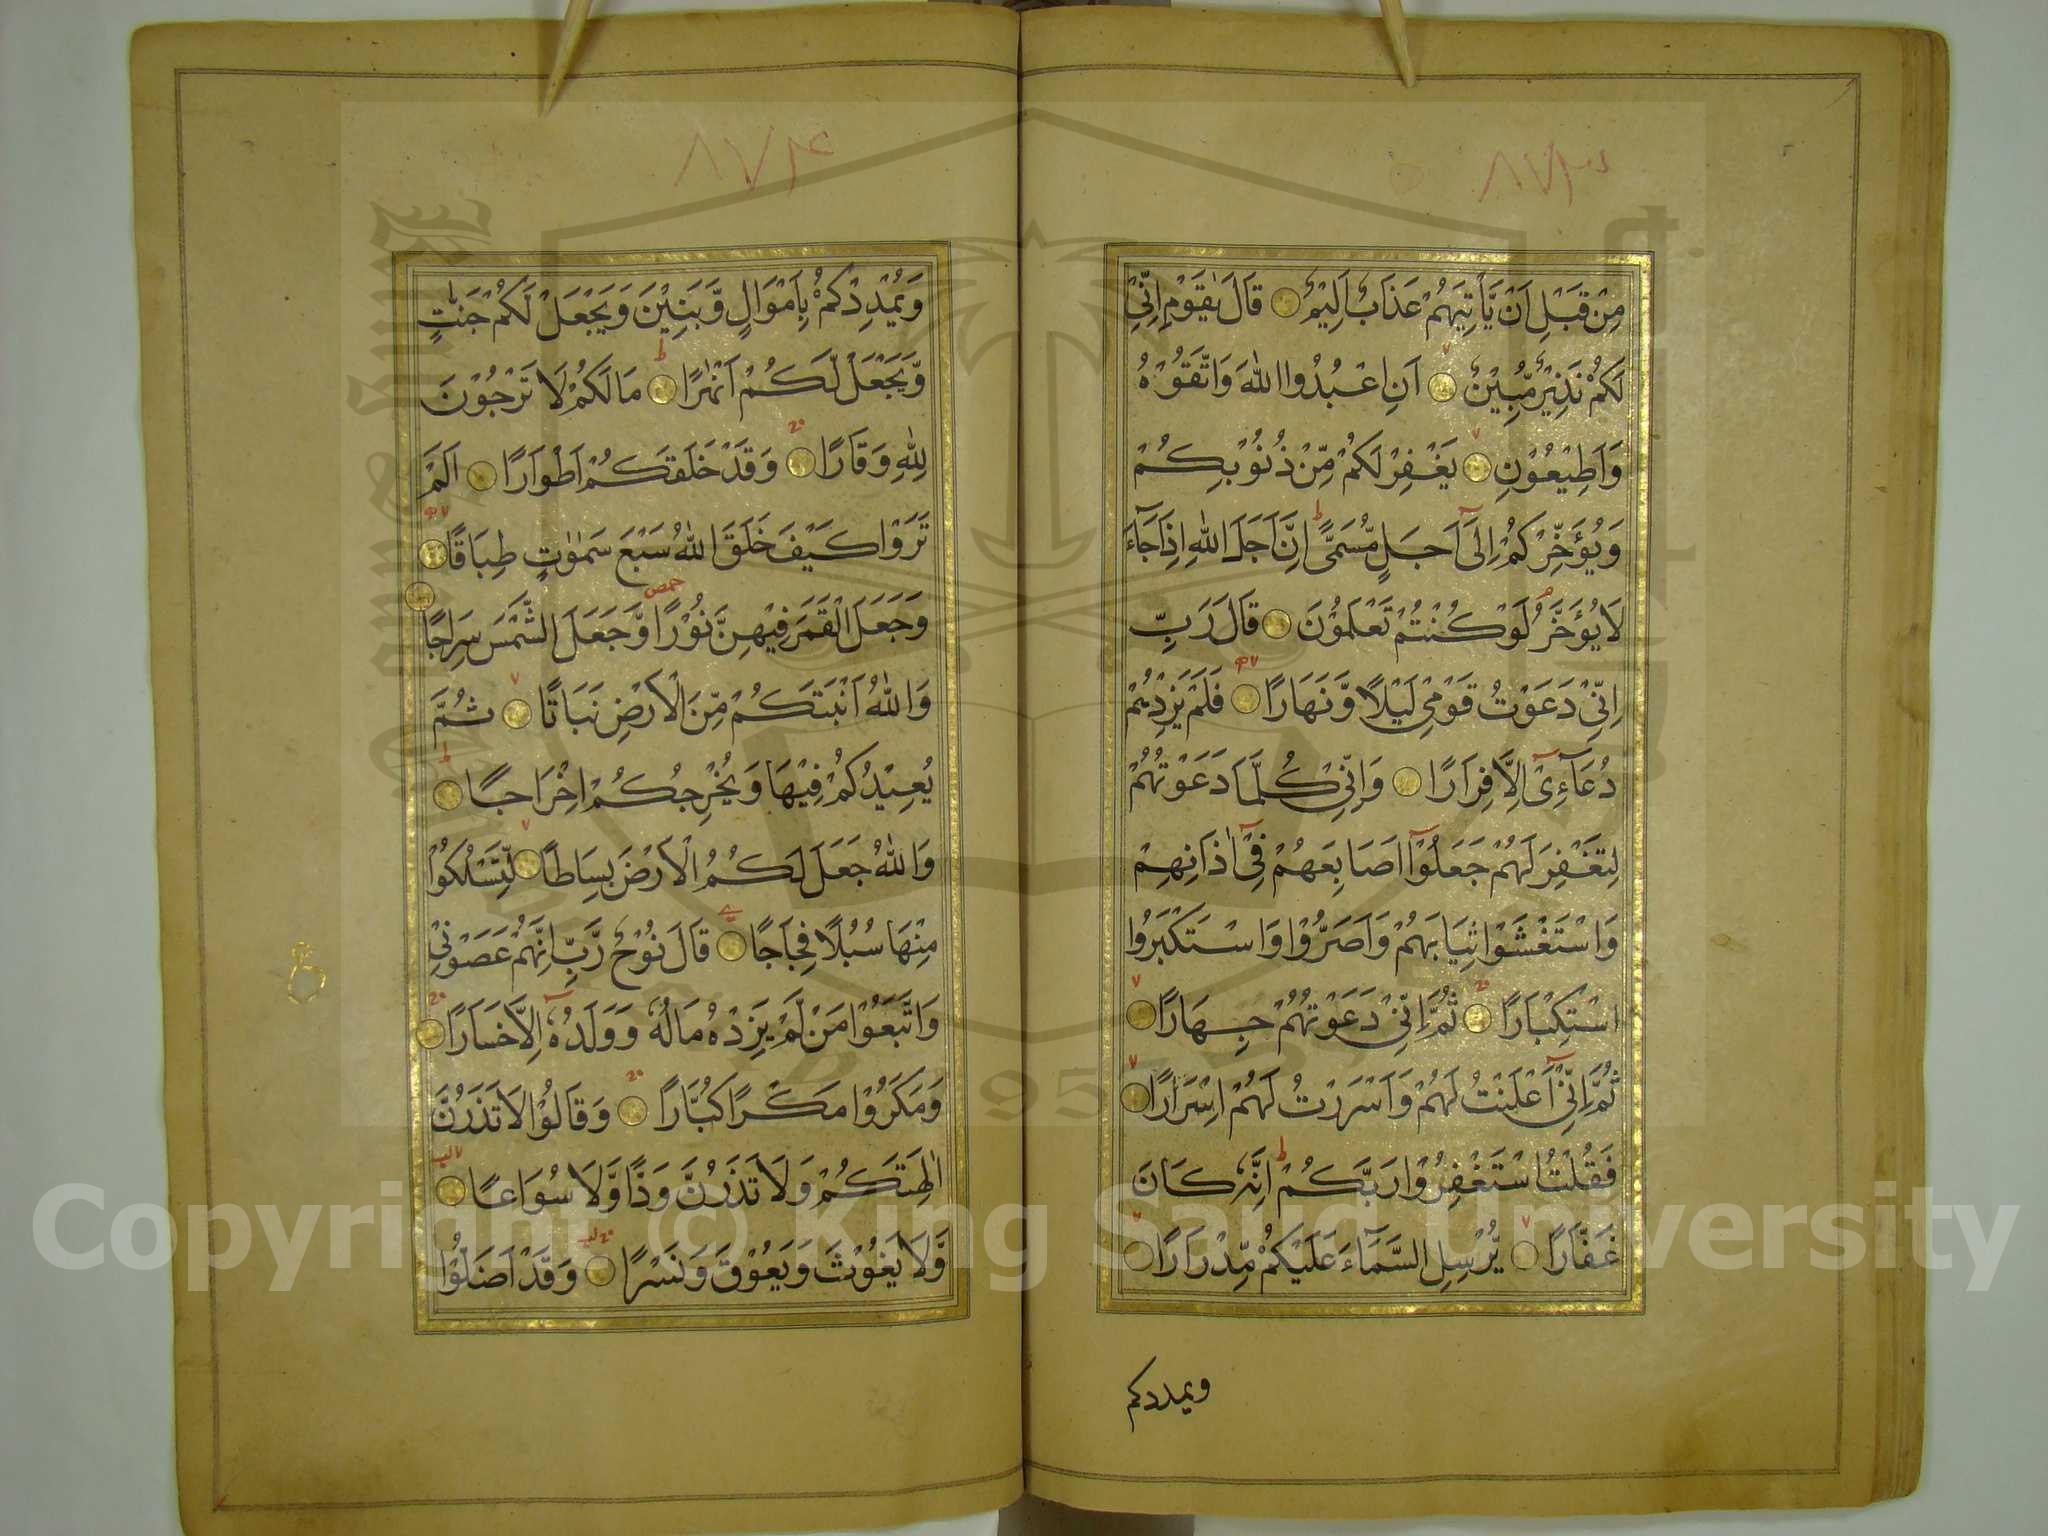 ٨٧٣
مِنْ قَبْلِ اَنْ يَّاْتِيَهُمْ عَذَابٌ اَلِيْمٌ ۝ قَالَ يٰقَوْمِ اِنِّيْ
لَكُمْ نَذِيْرٌ مُّبِيْنٌ ۝ اَنِ اعْبُدُوا اللّٰهَ وَاتَّقُوْهُ
وَاَطِيْعُوْنِ ۝ يَغْفِرْ لَكُمْ مِّنْ ذُنُوْبِكُمْ
وَيُؤَخِّرْكُمْ اِلٰٓى اَجَلٍ مُّسَمًّى ط اِنَّ اَجَلَ اللّٰهِ اِذَا جَآءَ
لَا يُؤَخَّرُ م لَوْ كُنْتُمْ تَعْلَمُوْنَ ۝ قَالَ رَبِّ
اِنِّيْ دَعَوْتُ قَوْمِيْ لَيْلًا وَّنَهَارًا ۝ فَلَمْ يَزِدْهُمْ
دُعَآءِيْٓ اِلَّا فِرَارًا ۝ وَاِنِّيْ كُلَّمَا دَعَوْتُهُمْ
لِتَغْفِرَ لَهُمْ جَعَلُوْٓا اَصَابِعَهُمْ فِيْٓ اٰذَانِهِمْ
وَاسْتَغْشَوْا ثِيَابَهُمْ وَاَصَرُّوْا وَاسْتَكْبَرُوا
اسْتِكْبَارًا ۝ ثُمَّ اِنِّيْ دَعَوْتُهُمْ جِهَارًا ۝
ثُمَّ اِنِّيْٓ اَعْلَنْتُ لَهُمْ وَاَسْرَرْتُ لَهُمْ اِسْرَارًا ۝
فَقُلْتُ اسْتَغْفِرُوْا رَبَّكُمْ ط اِنَّهٗ كَانَ
غَفَّارًا ۝ يُّرْسِلِ السَّمَآءَ عَلَيْكُمْ مِّدْرَارًا ۝
ويمددكم
٨٧٤
وَيُمْدِدْكُمْ بِاَمْوَالٍ وَّبَنِيْنَ وَيَجْعَلْ لَّكُمْ جَنّٰتٍ
وَّيَجْعَلْ لَّكُمْ اَنْهٰرًا ۝ ط مَا لَكُمْ لَا تَرْجُوْنَ
لِلّٰهِ وَقَارًا ۝ وَقَدْ خَلَقَكُمْ اَطْوَارًا ۝ اَلَمْ
تَرَوْا كَيْفَ خَلَقَ اللّٰهُ سَبْعَ سَمٰوٰتٍ طِبَاقًا ۝
وَجَعَلَ الْقَمَرَ فِيْهِنَّ نُوْرًا وَّجَعَلَ الشَّمْسَ سِرَاجًا ۝
وَاللّٰهُ اَنْبَتَكُمْ مِّنَ الْاَرْضِ نَبَاتًا ۝ ثُمَّ
يُعِيْدُكُمْ فِيْهَا وَيُخْرِجُكُمْ اِخْرَاجًا ۝ ط
وَاللّٰهُ جَعَلَ لَكُمُ الْاَرْضَ بِسَاطًا ۝ لِّتَسْلُكُوْا
مِنْهَا سُبُلًا فِجَاجًا ۝ قَالَ نُوْحٌ رَّبِّ اِنَّهُمْ عَصَوْنِيْ
وَاتَّبَعُوْا مَنْ لَّمْ يَزِدْهُ مَالُهٗ وَوَلَدُهٗٓ اِلَّا خَسَارًا ۝
وَمَكَرُوْا مَكْرًا كُبَّارًا ۝ وَقَالُوْا لَا تَذَرُنَّ
اٰلِهَتَكُمْ وَلَا تَذَرُنَّ وَدًّا وَّلَا سُوَاعًا ۝
وَّلَا يَغُوْثَ وَيَعُوْقَ وَنَسْرًا ۝ وَقَدْ اَضَلُّوْا
Copyright © King Saud University